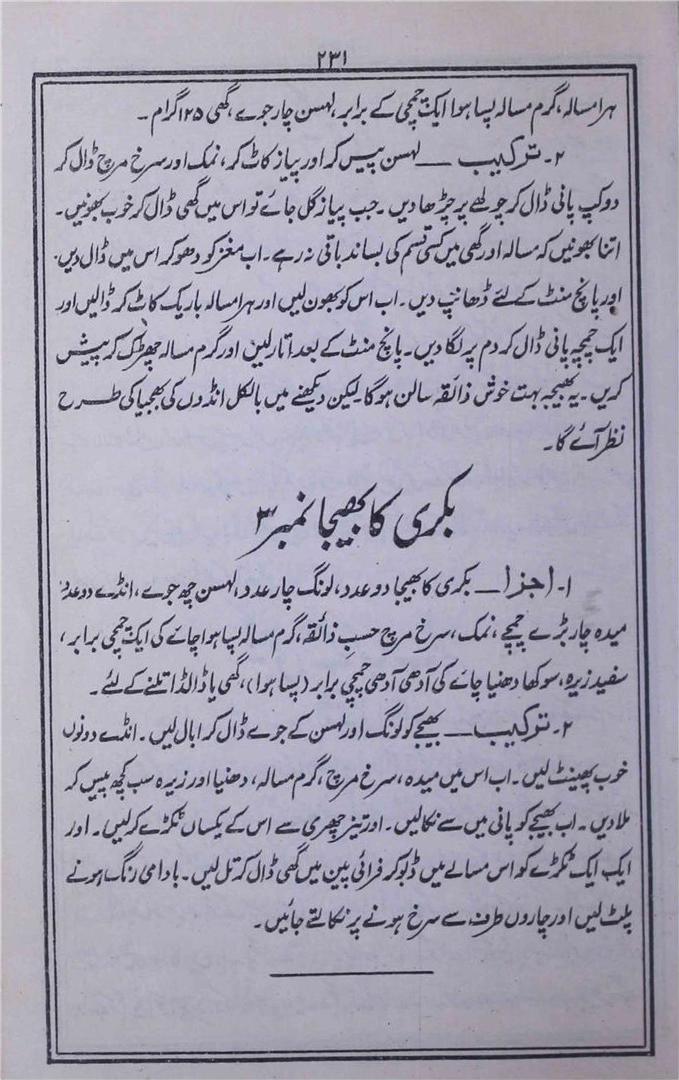 ۲۳۱
ہرا مسالہ، گرم مسالہ پسا ہوا ایک چمچی کے برابر، لہسن چار جوے، گھی ۱۲۵ گرام۔
۲۔ ترکیب — لہسن پیس کر اور پیاز کاٹ کر، نمک اور سرخ مرچ ڈال کر
دو کپ پانی ڈال کر چولھے پر چڑھا دیں۔ جب پیاز گل جائے تو اس میں گھی ڈال کر خوب بھونیں۔
اتنا بھونیں کہ مسالہ اور گھی میں کسی قسم کی بساند باقی نہ رہے۔ اب مغز کو دھو کر اس میں ڈال دیں۔
اور پانچ منٹ کے لئے ڈھانپ دیں۔ اب اس کو بھون لیں اور ہرا مسالہ باریک کاٹ کر ڈالیں اور
ایک چمچہ پانی ڈال کر دم پر لگا دیں۔ پانچ منٹ کے بعد اتار لین اور گرم مسالہ چھڑک کر پیش
کریں۔ یہ بھیجہ بہت خوش ذائقہ سالن ہو گا لیکن دیکھنے میں بالکل انڈوں کی بھجیا کی طرح
نظر آئے گا۔
بکری کا بھیجا نمبر ۳
۱۔ اجزا — بکری کا بھیجا دو عدد، لونگ چار عدد، لہسن چھ جوے، انڈے دو عدد
میدہ چار بڑے چمچے، نمک، سرخ مرچ حسبِ ذائقہ، گرم مسالہ پسا ہوا چائے کی ایک چمچی برابر،
سفید زیرہ، سوکھا دھنیا چائے کی آدھی آدھی چمچی برابر (پسا ہوا)، گھی یا ڈالڈا تلنے کے لئے۔
۲۔ ترکیب — بھیجے کو لونگ اور لہسن کے جوے ڈال کر ابال لیں۔ انڈے دونوں
خوب پھینٹ لیں۔ اب اس میں میدہ، سرخ مرچ، گرم مسالہ، دھنیا اور زیرہ سب کچھ پیس کر
ملا دیں۔ اب بھیجے کو پانی میں سے نکالیں۔ اور تیز چھری سے اس کے یکساں ٹکڑے کر لیں۔ اور
ایک ایک ٹکڑے کو اس مسالے میں ڈبو کر فرائی پین میں گھی ڈال کر تل لیں۔ بادامی رنگ ہونے
پلٹ لیں اور چاروں طرف سے سرخ ہونے پر نکالتے جائیں۔